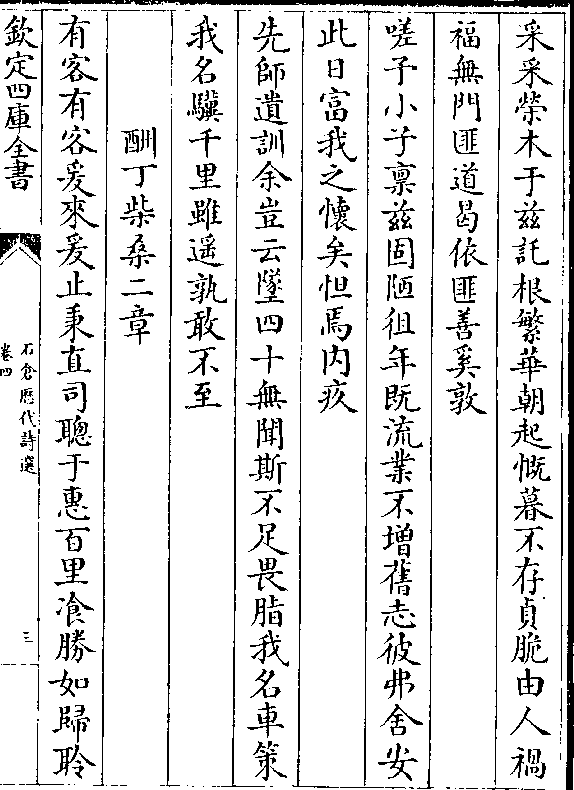 采采榮木于兹託根繁華朝起慨暮不存貞脆由人禍
福無門匪道曷依匪善奚敦
嗟予小子禀兹固陋徂年既流業不增舊志彼弗舍安
此日富我之懷矣怛焉内疚
先師遺訓余豈云墜四十無聞斯不足畏脂我名車策
我名驥千里雖遥孰敢不至
酬丁柴桑二章
有客有客爰來爰止秉直司聰于惠百里飡勝如歸聆
欽定四庫全書
石倉歷代詩選
卷四
三